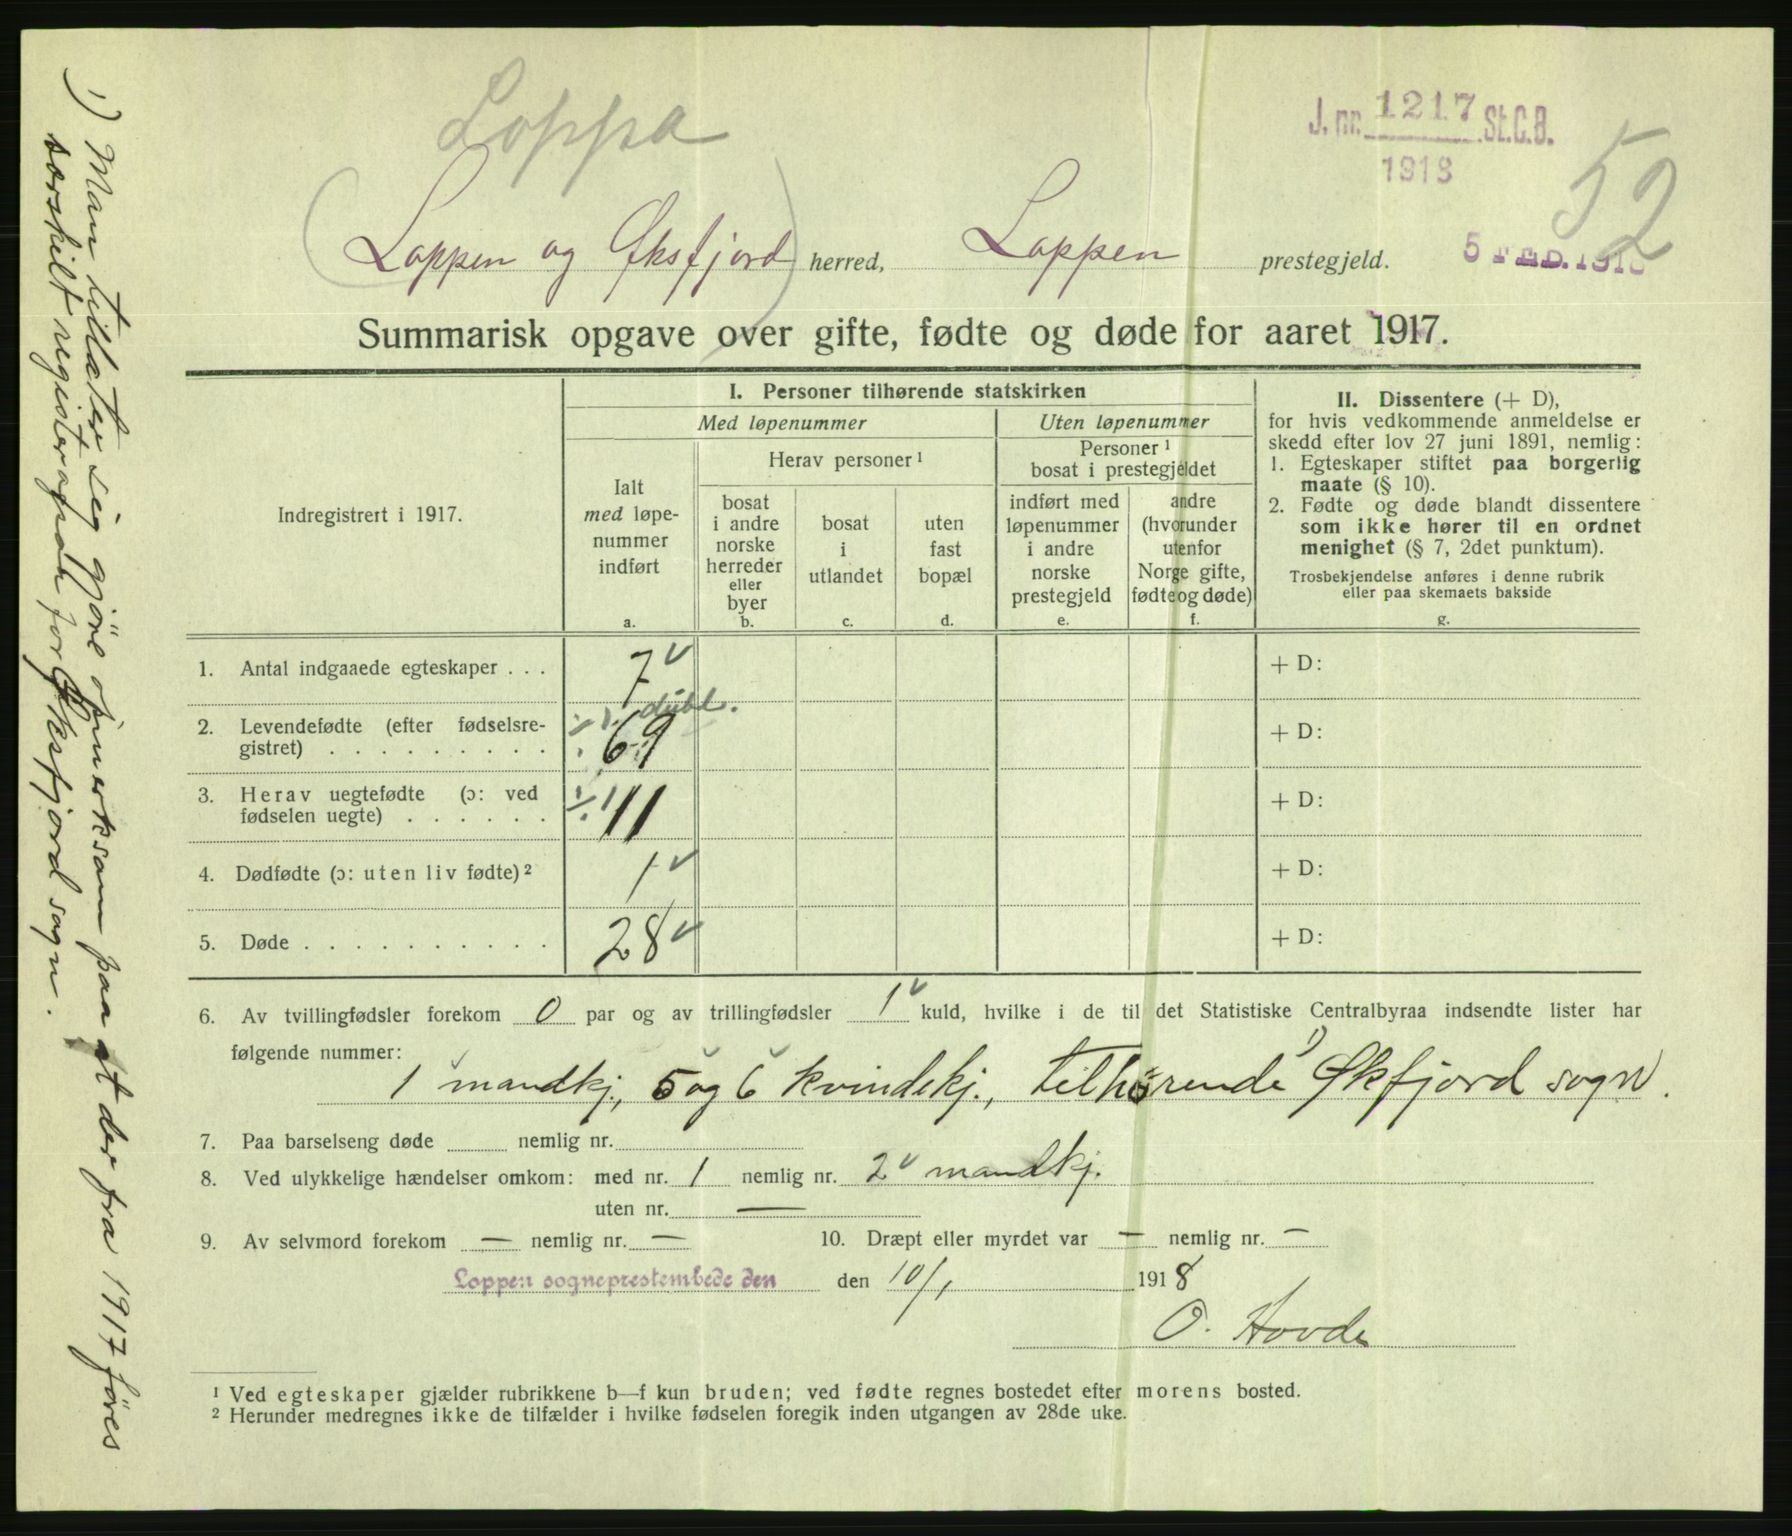 Loppa
J. nr. 1217 St.C.B.
1918
52
Loppen og Øksfjord herred, Loppen prestegjeld.
5 FEB. 1918
Summarisk opgave over gifte, fødte og døde for aaret 1917.
Indregistrert i 1917.
I. Personer tilhørende statskirken
Med løpenummer
Uten løpenummer
Ialt
med løpe-
nummer
indført
a.
Herav personer ¹
bosat
i andre
norske
herreder
eller
byer
b.
bosat
i
utlandet
c.
uten
fast
bopæl
d.
Personer ¹
bosat i prestegjeldet
indført med
løpenummer
i andre
norske
prestegjeld
e.
andre
(hvorunder
utenfor
Norge gifte,
fødte og døde)
f.
II. Dissentere (+ D),
for hvis vedkommende anmeldelse er
skedd efter lov 27 juni 1891, nemlig:
1. Egteskaper stiftet paa borgerlig
maate (§ 10).
2. Fødte og døde blandt dissentere
som ikke hører til en ordnet
menighet (§ 7, 2det punktum).
Trosbekjendelse anføres i denne rubrik
eller paa skemaets bakside
g.
1. Antal indgaaede egteskaper . . . 7 ✓ + D:
÷ 1 dubl.
2. Levendefødte (efter fødselsre-
gistret) . . . . . . . . . 69 + D:
3. Herav uegtefødte (ɔ: ved
fødselen uegte) . . . . . . ÷ 1 11 + D:
4. Dødfødte (ɔ: uten liv fødte) ² 1 ✓ + D:
5. Døde . . . . . . . . . . 28 ✓ + D:
6. Av tvillingfødsler forekom 0 par og av trillingfødsler 1 ✓ kuld, hvilke i de til det Statistiske Centralbyraa indsendte lister har
følgende nummer:
1 mandkj., 5 og 6 kvindekj., tilhørende ¹) Øksfjord sogn.
7. Paa barselseng døde nemlig nr.
8. Ved ulykkelige hændelser omkom: med nr. 1 nemlig nr. 2 ✓ mandkj.
uten nr. —
9. Av selvmord forekom — nemlig nr. — 10. Dræpt eller myrdet var — nemlig nr. —
Loppen sogneprestembede den den 10/1 1918
O. Hovde
¹ Ved egteskaper gjælder rubrikkene b—f kun bruden; ved fødte regnes bostedet efter morens bosted.
² Herunder medregnes ikke de tilfælder i hvilke fødselen foregik inden utgangen av 28de uke.
¹) Man tillater sig gjöre opmerksom paa at der fra 1917 föres
særskilt registerafskr. for Øksfjord sogn.